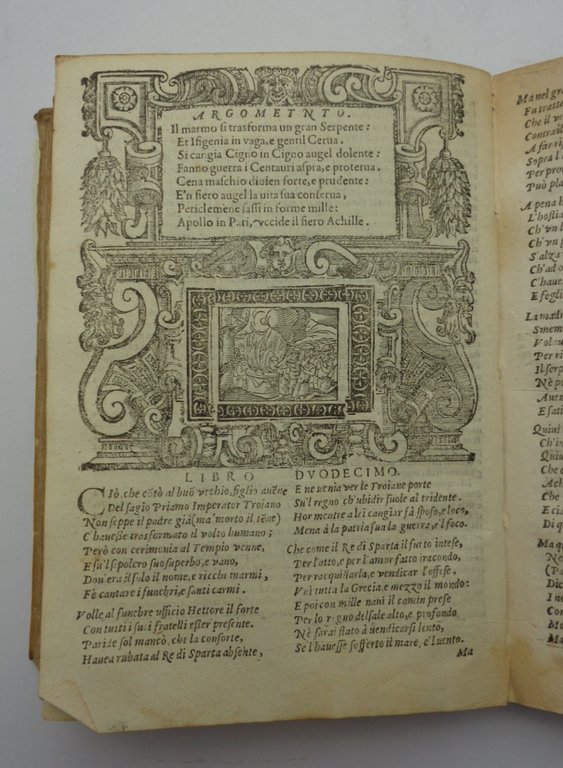 ARGOMEYNTO.
Il marmo si trasforma un gran Serpente:
Et Ifigenia in vaga, e gentil Cerua.
Si cangia Cigno in Cigno augel dolente:
Fanno guerra i Centauri aspra, e proterua.
Cena maschio diuien forte, e prudente:
E'n fiero augel la uita sua conserua,
Periclemene sassi in forme mille:
Apollo in Pari, vccide il fiero Achille.
LIBRO DVODECIMO.
CIò, che cōtò al buō vecchio, figlio auēne
Del sagio Priamo Imperator Troiano
Non seppe il padre già (ma'morto il tēne)
C'hauesse trasformato il volto humano;
Però con cerimonia al Tempio venne,
E su'l sepolcro suo superbo, e vano,
Dou'era il solo il nome, e ricchi marmi,
Fè cantare i funebri, e santi carmi.
Volle al funebre ufficio Hettore il forte
Con tutti i suoi fratelli esser presente.
Paride sol mancò, che la consorte,
Hauea rubata al Re di Sparta absente,
E ne uenia ver le Troiane porte
Su'l regno ch'ubidir suole al tridente.
Hor mentre a lei cangiar fà sposo, e loco,
Mena à la patria sua la guerra, e'l foco.
Che come il Re di Sparta il furto intese,
Per l'atto, e per l'amor fatto iracondo,
Per racquistarla, e vendicar l'offese,
Vnì tutta la Grecia, e mezzo il mondo:
E poi con mille naui il camin prese
Per lo regno del sale alto, e profondo
Nè sarai stato à uendicarsi lento,
Se l'hauesse sofferto il mare, e'l uento.
Ma
Ma nel gra
Fu tratte
Che il v
A far rif
Sopra l'
Per pro
Può pla
A pena h
L'hostia
Ch'vn l
Ch'vn
S'alza
Ch'ad o
C'haue
E fegli
La madr
Smem
Volea
Per ri
Il serp
Nè p
Auen
E fati
Quiui
Ch'in
Quiu
Che e
Ach
Che
E ci
Di q
Ma qu
N
(Pa
Di
I no
Co
Mo
Ma